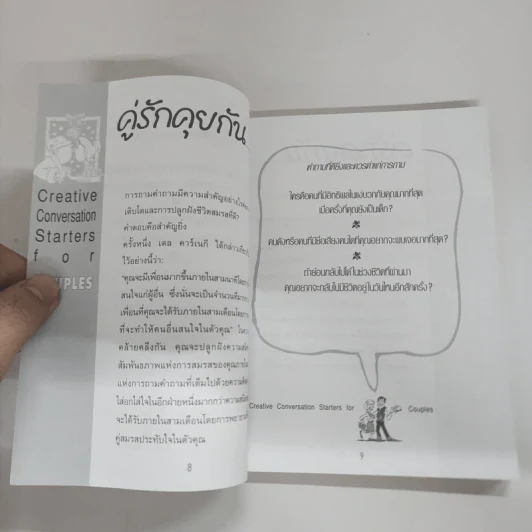 คู่รักคุยกัน
Creative
Conversation
Starters
for
UPLES
การถามคำถามมีความสำคัญอย่างไร
เติบโตและการปลูกฝังชีวิตสมรสที่ดี
คำตอบคือสำคัญยิ่ง
ครั้งหนึ่ง เดล คาร์เนกี ได้กล่าวเกี่ยว
ไว้อย่างนี้ว่า:
"คุณจะมีเพื่อนมากขึ้นภายในสามนาทีโดยการ
สนใจแก่ผู้อื่น ซึ่งนั่นจะเป็นจำนวนที่มากกว่า
เพื่อนที่คุณจะได้รับภายในสามเดือนโดยการ
ที่จะทำให้คนอื่นสนใจในตัวคุณ" ใน
คล้ายคลึงกัน คุณจะปลูกฝังความ
สัมพันธภาพแห่งการสมรสของคุณภายใน
แห่งการถามคำถามที่เต็มไปด้วยความ
ใส่อกใส่ใจในอีกฝ่ายหนึ่งมากกว่าความ
จะได้รับภายในสามเดือนโดยการพยายาม
คู่สมรสประทับใจในตัวคุณ
8
คำถามที่ดียิ่งและควรค่าแก่การถาม
ใครคือคนที่มีอิทธิพลในแง่บวกกับคุณมากที่สุด
เมื่อครั้งที่คุณยังเป็นเด็ก?
คนดังหรือคนที่มีชื่อเสียงคนใดที่คุณอยากจะพบเจอมากที่สุด?
ถ้าย้อนกลับไปได้ในช่วงชีวิตที่ผ่านมา
คุณอยากจะกลับไปมีชีวิตอยู่ในวันไหนอีกสักครั้ง?
Creative Conversation Starters for Couples
9